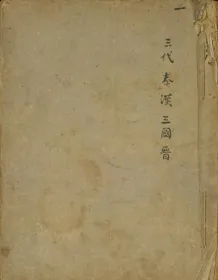 一
三代秦漢三國晉